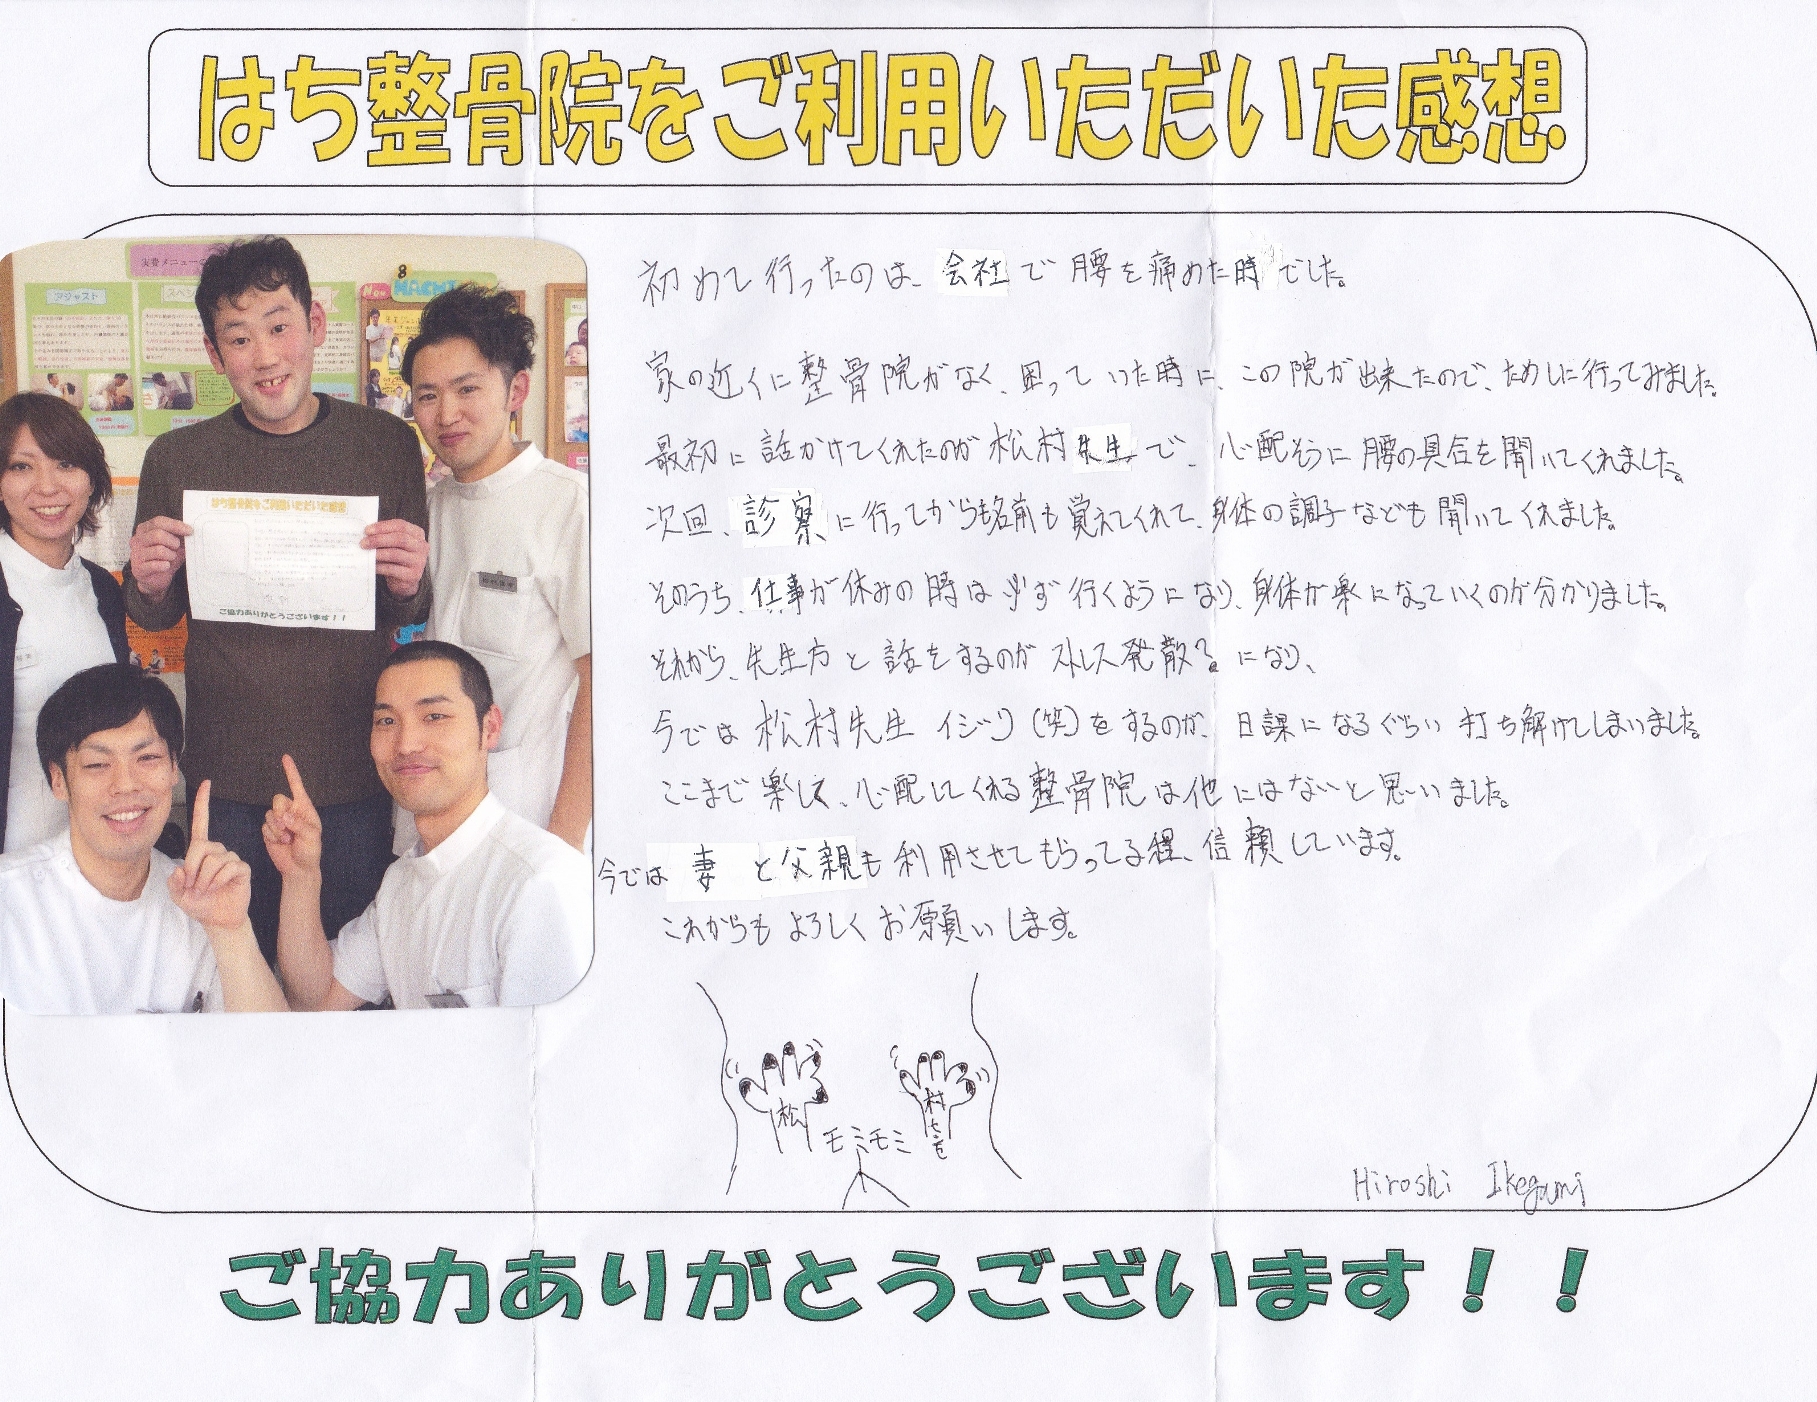 はち整骨院をご利用いただいた感想
初めて行ったのは、会社で腰を痛めた時でした。
家の近くに整骨院がなく、困っていた時に、この院が出来たので、ためしに行ってみました。
最初に話かけてくれたのが松村先生で、心配そうに腰の具合を聞いてくれました。
次回、診察に行ってからも名前も覚えてくれて、身体の調子なども聞いてくれました。
そのうち、仕事が休みの時は必ず行くようになり、身体が楽になっていくのが分かりました。
それから、先生方と話をするのがストレス発散?になり、
今では松村先生イジリ(笑)をするのが、日課になるぐらい打ち解けてしまいました。
ここまで楽しくて、心配してくれる整骨院は他にはないと思いました。
今では妻と父親も利用させてもらってる程、信頼しています。
これからもよろしくお願いします。
松
村
モミモミ
Hiroshi Ikegami
ご協力ありがとうございます!!
実費メニューの
アジャスト
スペシ
Now
HACHI
はち整骨院をご利用いただいた感想
ご協力ありがとうございます!!